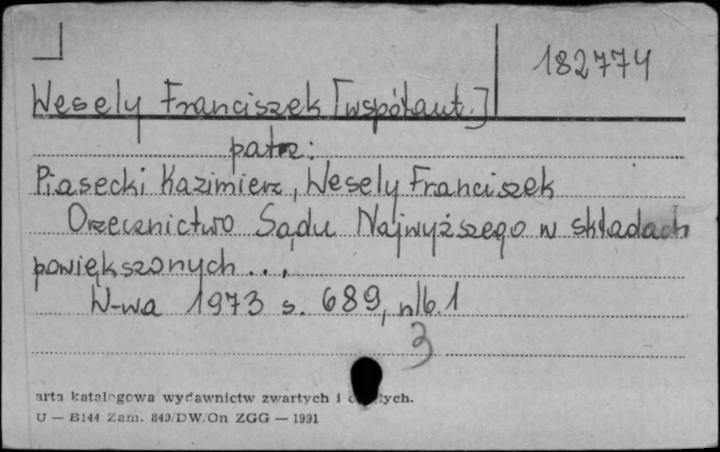 182774
Wesely Franciszek [współaut.]
patrz:
Piasecki Kazimierz, Wesely Franciszek
Orzecznictwo Sądu Najwyższego w składach
powiększonych...,
W-wa 1973 s. 689, nlb. 1
3
arta katalogowa wydawnictw zwartych i ych.
U — B144 Zam. 849/DW/On ZGG — 1991